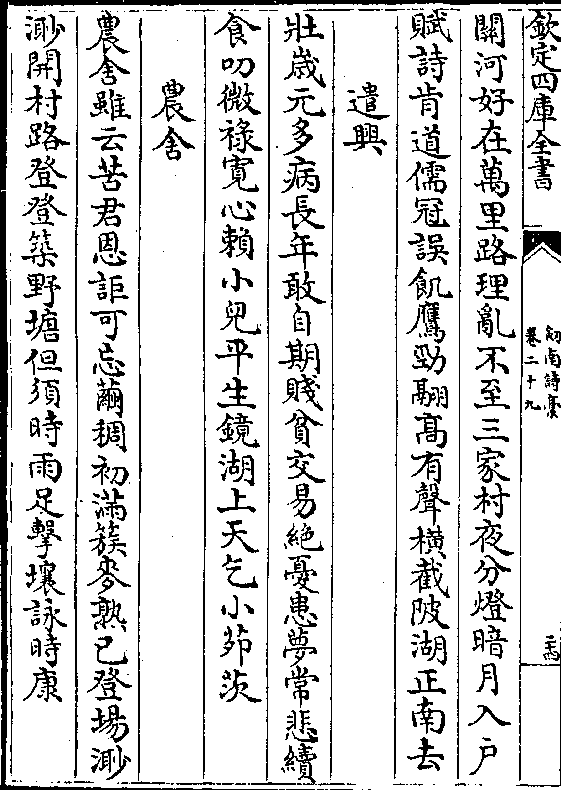 欽定四庫全書
劍南詩藁
卷二十九
關河好在萬里路理亂不至三家村夜分燈暗月入戶
賦詩肯道儒冠誤飢鷹勁翮髙有聲横截陂湖正南去
遣興
壯歳元多病長年敢自期賤貧交易絶憂患夢常悲續
食叨微禄寛心頼小兒平生鏡湖上天乞小茆茨
農舍
農舍雖云苦君恩詎可忘繭稠初滿簇麥熟已登場㴐
㴐開村路登登築野塘但須時雨足擊壤詠時康